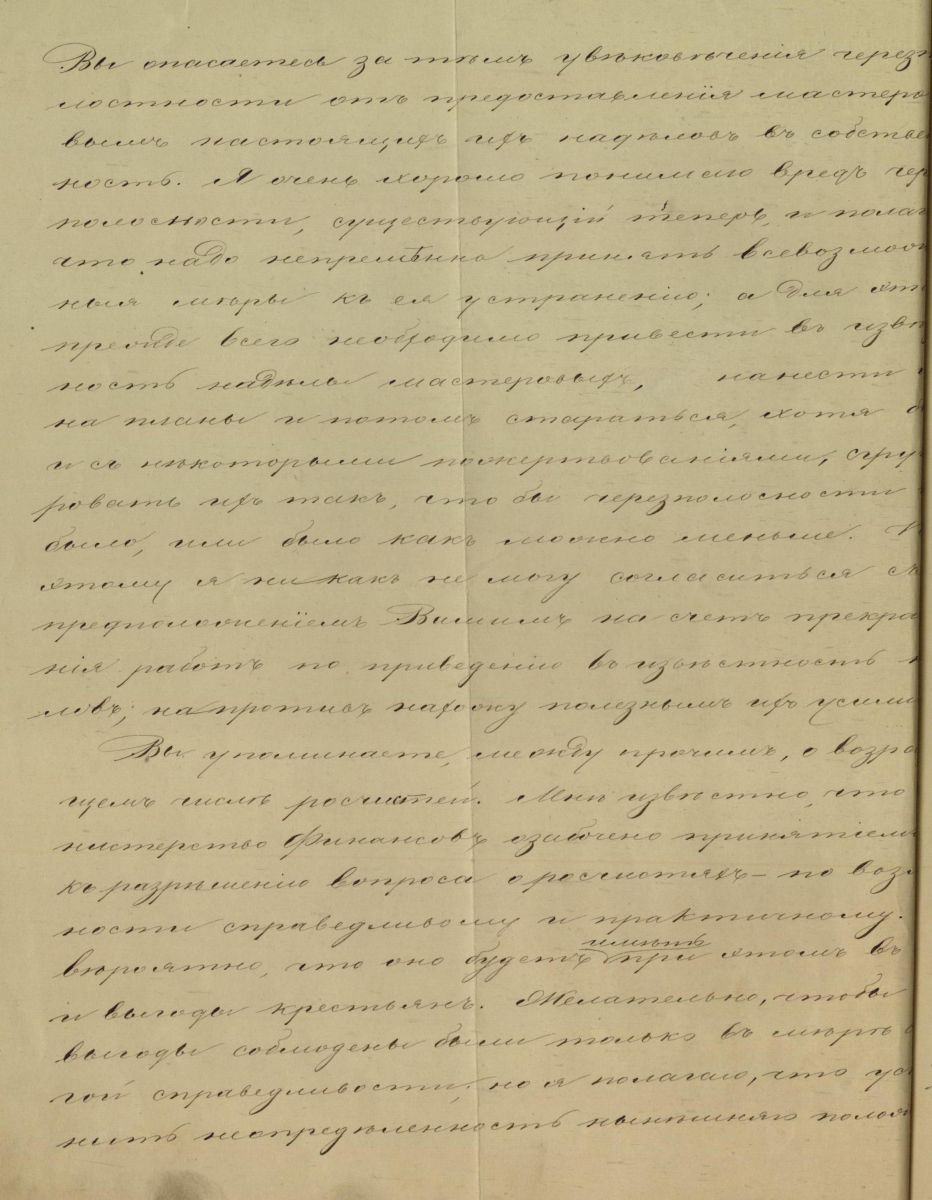 Вы опасаетесь за тѣмъ увѣковѣченія черезпо
лостности отъ предоставленія мастеро
вымъ настоящихъ ихъ надѣловъ въ собствен
ность. Я очень хорошо понимаю вредъ чер
полосности, существующій теперь, и полаг
что надо непремѣнно принять всевозмож
ныя мѣры къ ея устраненію; а для эт
прежде всего необходимо привести въ извѣ
ность надѣлы мастеровыхъ, нанести
на планы и потомъ стараться, хотя б
и съ нѣкоторыми пожертвованіями, груп
ровать ихъ такъ, что бы черезполосности
было, или было какъ можно меньше. П
этому я ни какъ не могу согласиться съ
предположеніемъ Вашимъ на счетъ прекра
нія работъ по приведенію въ извѣстность н
ловъ; на противъ нахожу полезнымъ ихъ усили
Вы упоминаете, между прочимъ, о возра
щемъ числѣ росчистей. Мнѣ извѣстно, что
нистерство Финансовъ озабочено принятіемъ
къ разрѣшенію вопроса о росчистяхъ – по возм
ности справедливому и практичному.
вѣроятно, что оно будетъ имѣть при этомъ въ
и выгоды крестьянъ. Желательно, чтобы
выгоды соблюдены были только въ мѣрѣ
гой справедливости; но я полагаю, что уст
нить неопредѣленность нынѣшняго полож